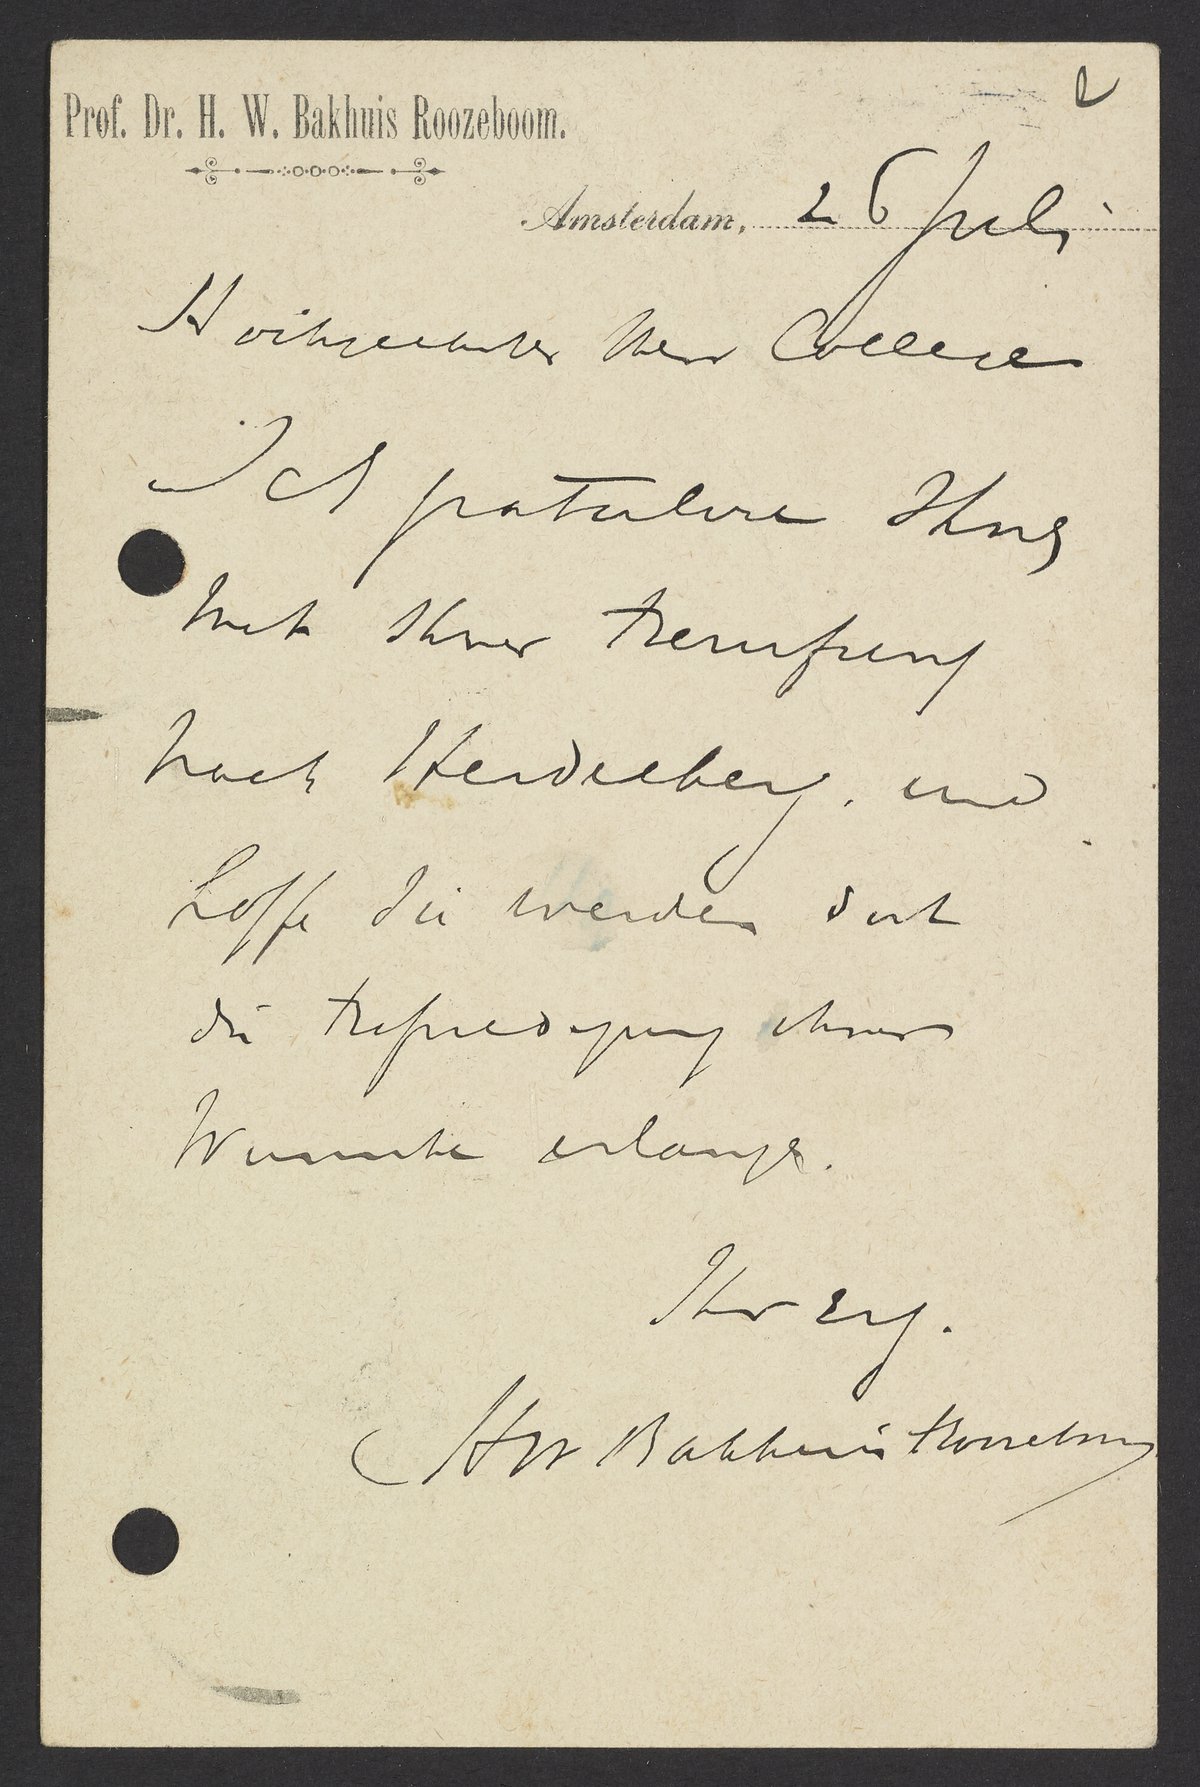 Prof. Dr. H. W. Bakhuis Roozeboom.
Amsterdam, 26 Juli
Hochgeehrter Herr College
Ich gratulire Ihnen
mit Ihrer Berufung
nach Heidelberg, und
hoffe Sie werden dort
die Befriedigung ihrer
Wünsche erlangen.
Ihr erg.
HW Bakhuis Roozeboom